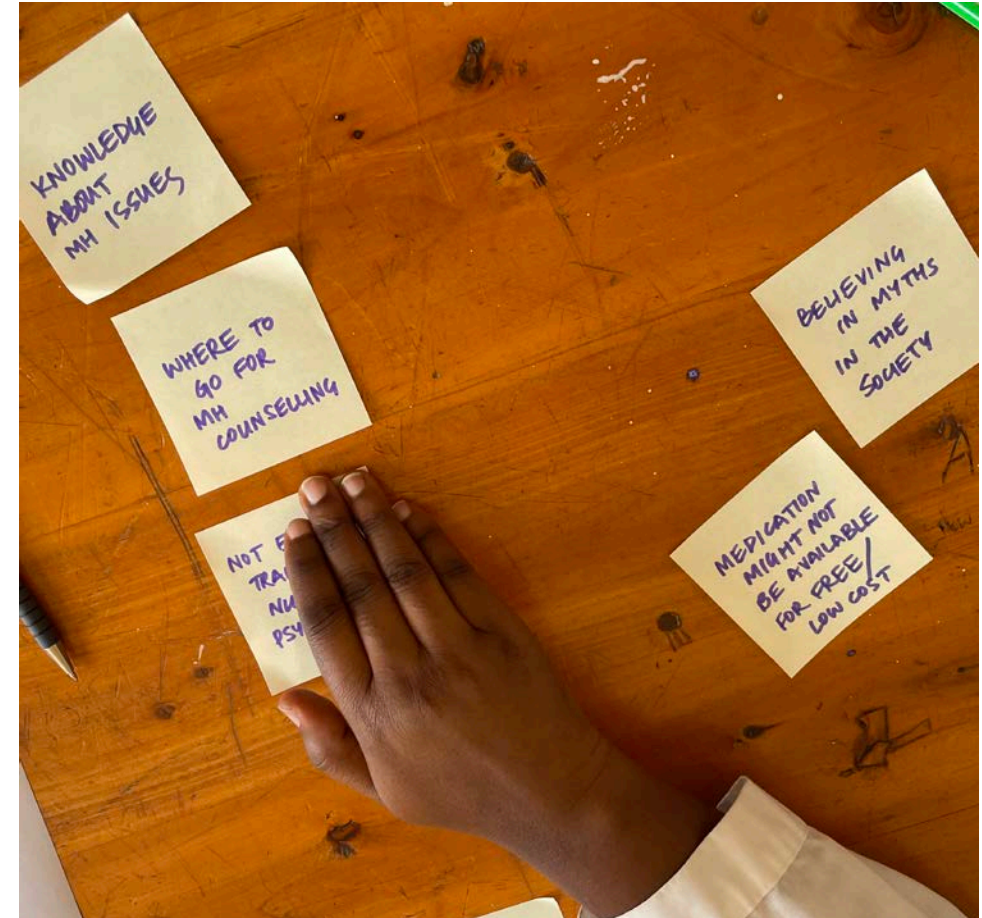 KNOWLEDGE
ABOUT
MH ISSUES
WHERE TO
GO FOR
MH
COUNSELLING
NOT
BELIEVING
IN MYTHS
IN THE
SOCIETY
MEDICATION
MIGHT NOT
BE AVAILABLE
FOR FREE/
LOW COST